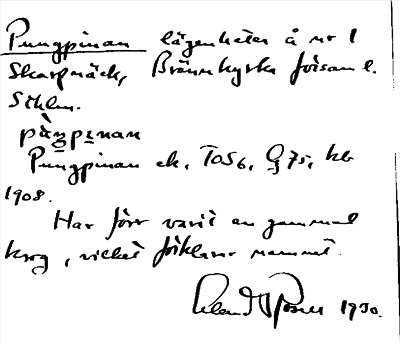 Pungpinan lägenheter å nr 1
Skarpnäck, Brännkyrka församl.
Sthlm.
pùŋpınan
Pungpinan ek, T056, G75, hb
1908.
Har förr varit en gammal
krog, vilket förklarar namnet.
1930.